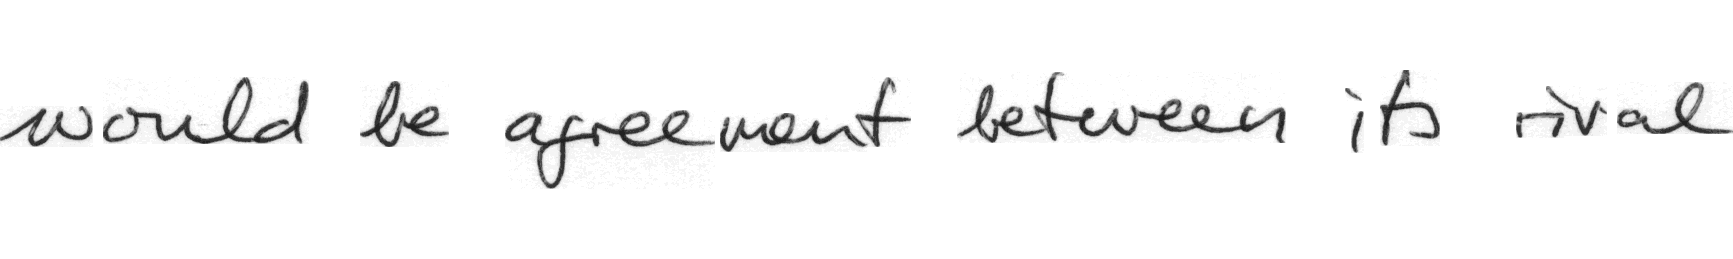 would be agreement between its rival